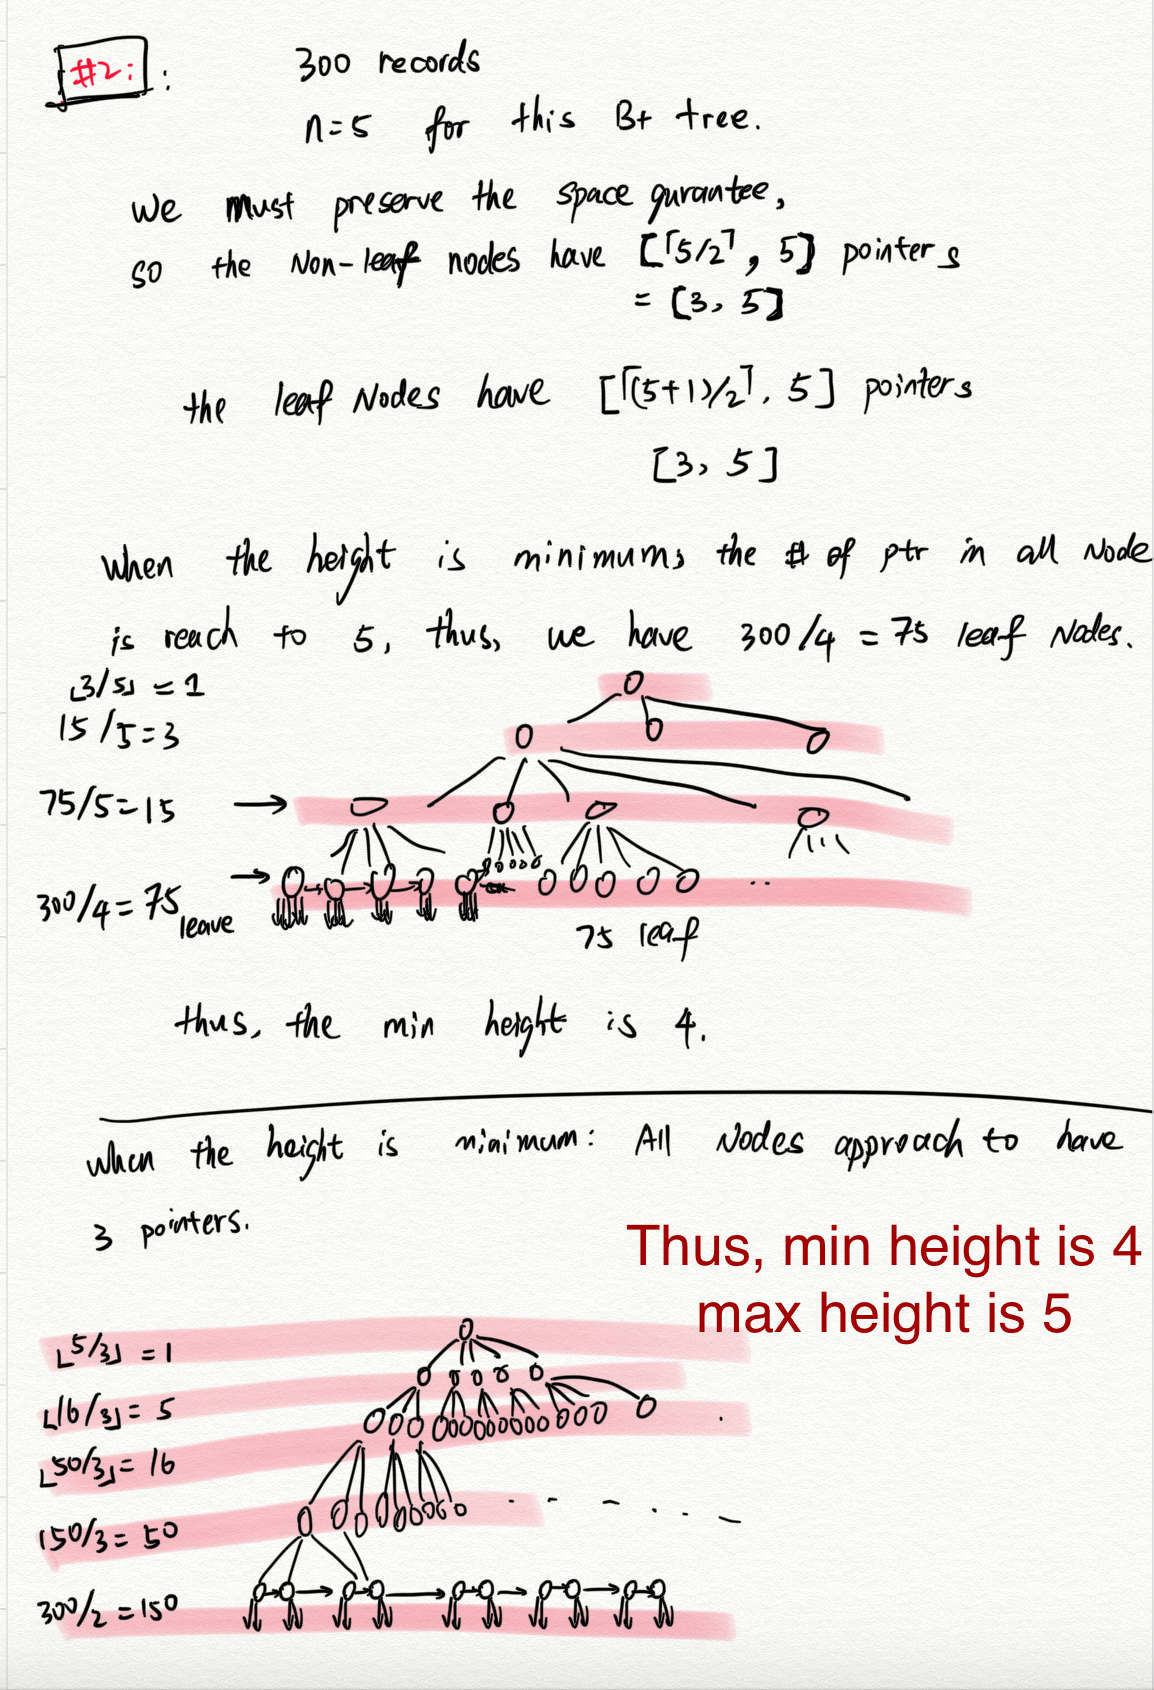 #2: :
300 records
n=5 for this B+ tree.
We must preserve the space gurantee,
so the Non-leaf nodes have [⌈5/2⌉, 5] pointers
= [3, 5]
the leaf Nodes have [⌈(5+1)/2⌉, 5] pointers
[3, 5]
when the height is minimum, the # of ptr in all Node
is reach to 5, thus, we have 300/4 = 75 leaf Nodes.
⌊3/5⌋ = 1
15/5=3
75/5=15 →
300/4=75 leave →
75 leaf
thus, the min height is 4.
when the height is minimum: All Nodes approach to have
3 pointers.
Thus, min height is 4
max height is 5
⌊5/3⌋ = 1
⌊16/3⌋ = 5
⌊50/3⌋ = 16
150/3 = 50
300/2 = 150